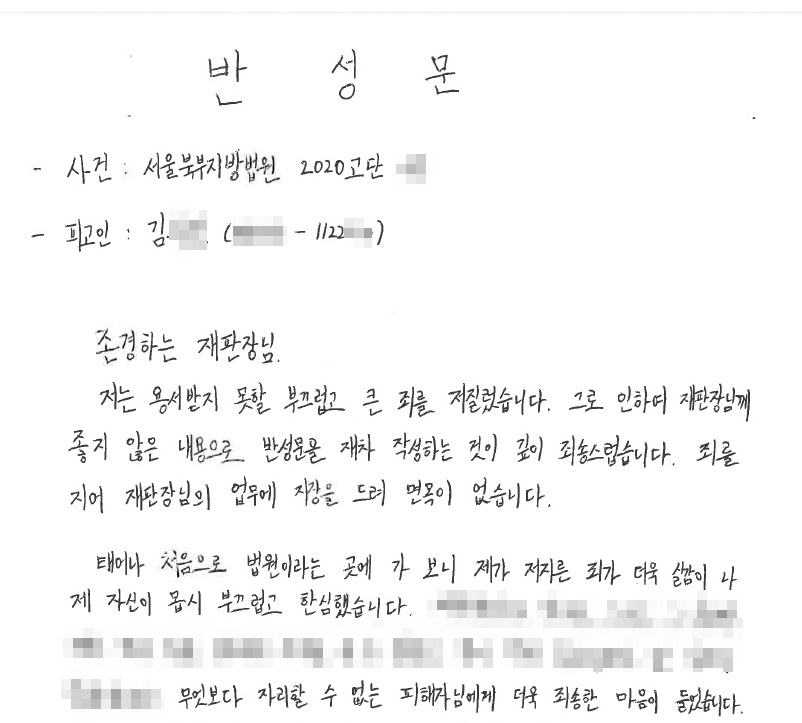 반 성 문
- 사건 : 서울북부지방법원 2020고단
- 피고인 : 김 ( - 1122 )
존경하는 재판장님.
저는 용서받지 못할 부끄럽고 큰 죄를 저질렀습니다. 그로 인하여 재판장님께
좋지 않은 내용으로 반성문을 재차 작성하는 것이 깊이 죄송스럽습니다. 죄를
지어 재판장님의 업무에 지장을 드려 면목이 없습니다.
태어나 처음으로 법원이라는 곳에 가 보니 제가 저지른 죄가 더욱 실감이 나
제 자신이 몹시 부끄럽고 한심했습니다.
무엇보다 자리할 수 없는 피해자님에게 더욱 죄송한 마음이 들었습니다.